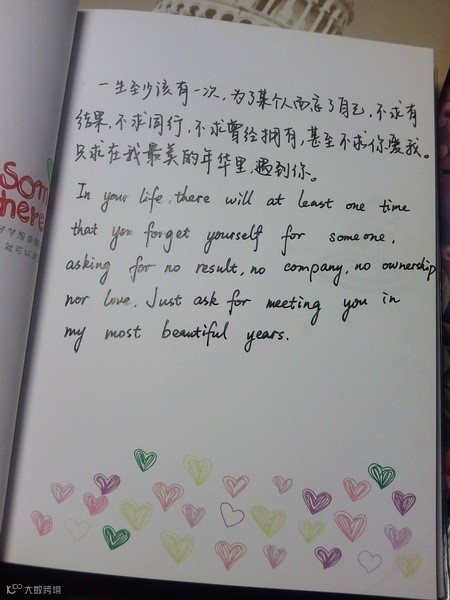 一生至少该有一次，为了某个人而忘了自己，不求有
结果，不求同行，不求曾经拥有，甚至不求你爱我。
只求在我最美的年华里，遇到你。
In your life, there will at least one time
that you forget yourself for someone,
asking for no result, no company, no ownership
nor love. Just ask for meeting you in
my most beautiful years.
som
here
大数跨境